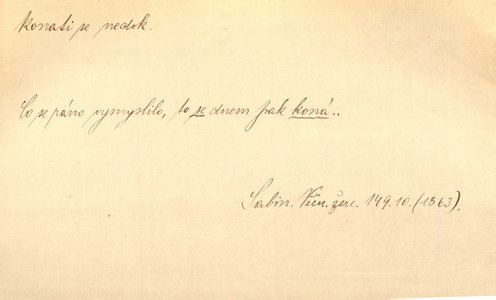 konati se nedok.
Co se ráno vymyslilo, to se dnem pak koná..
Sabin. Věčn. ženc. 149.10. (1863).